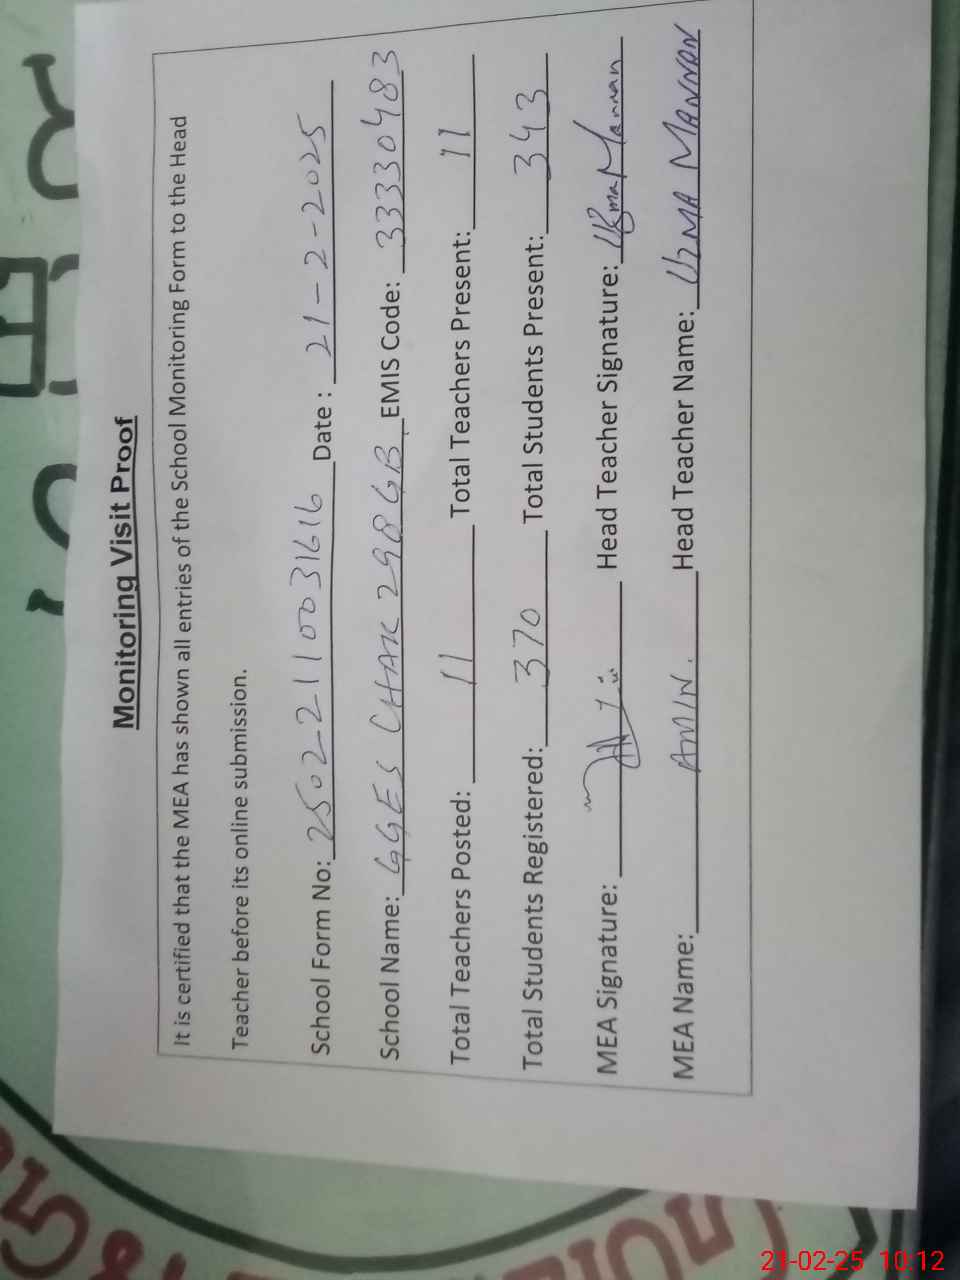 Monitoring Visit Proof
It is certified that the MEA has shown all entries of the School Monitoring Form to the Head
Teacher before its online submission.
School Form No: 25022110031616 Date : 21-2-2025
School Name: GGES CHAK 298 GB EMIS Code: 33330483
Total Teachers Posted: 11 Total Teachers Present: 11
Total Students Registered: 370 Total Students Present: 343
MEA Signature: Head Teacher Signature: Uzma Mannan
MEA Name: AMIN. Head Teacher Name: UZMA MANNAN
21-02-25 10:12